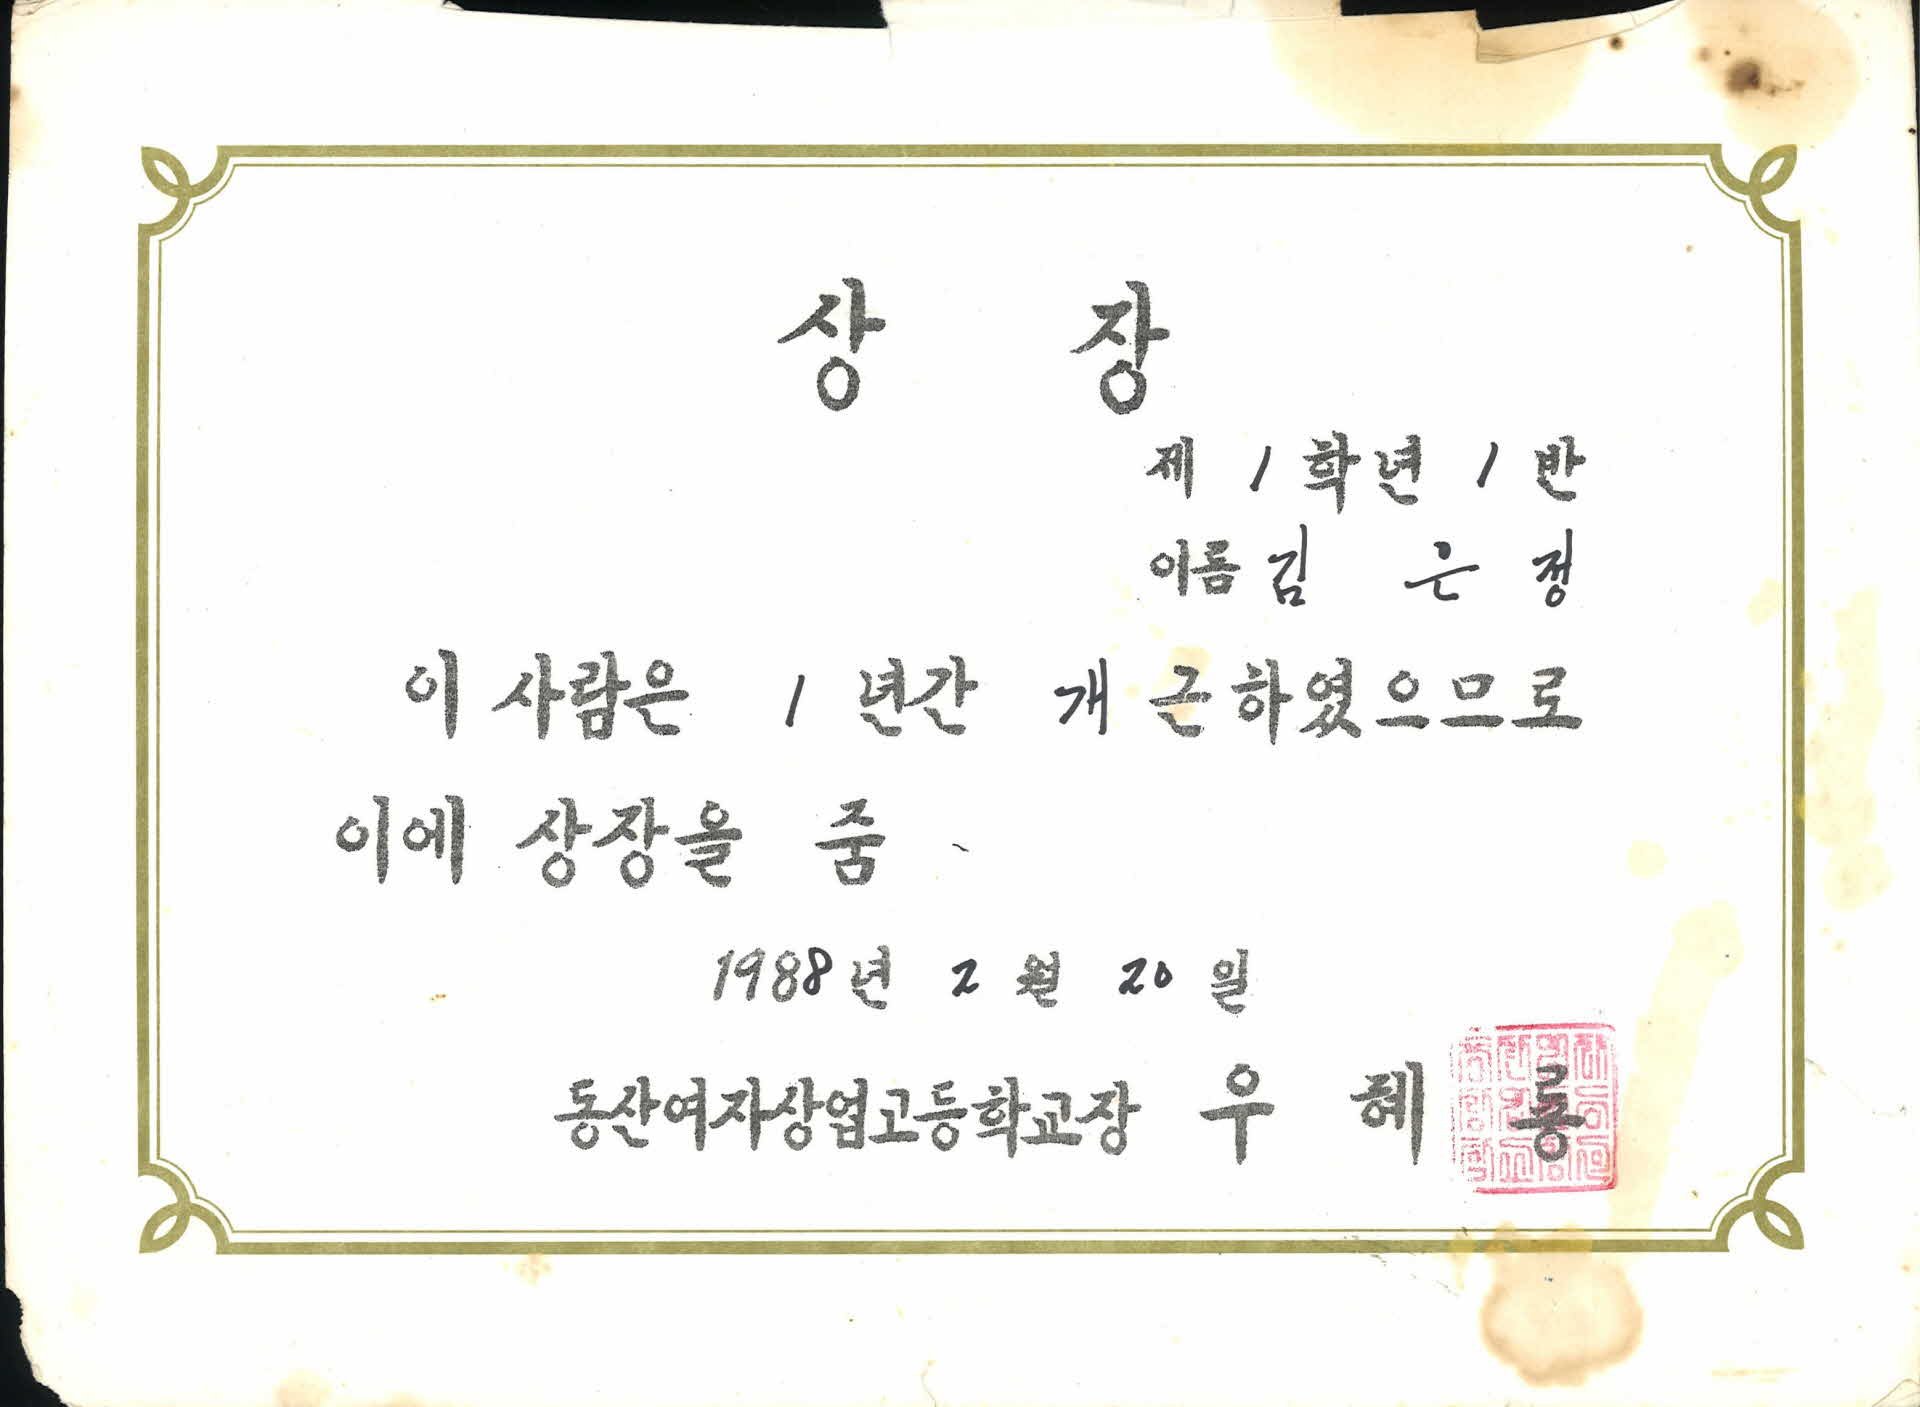 상 장
제 1 학년 1 반
이름 김 은 정
이 사람은 1 년간 개근하였으므로
이에 상장을 줌
1988년 2 월 20 일
동산여자상업고등학교장 우 혜 룡